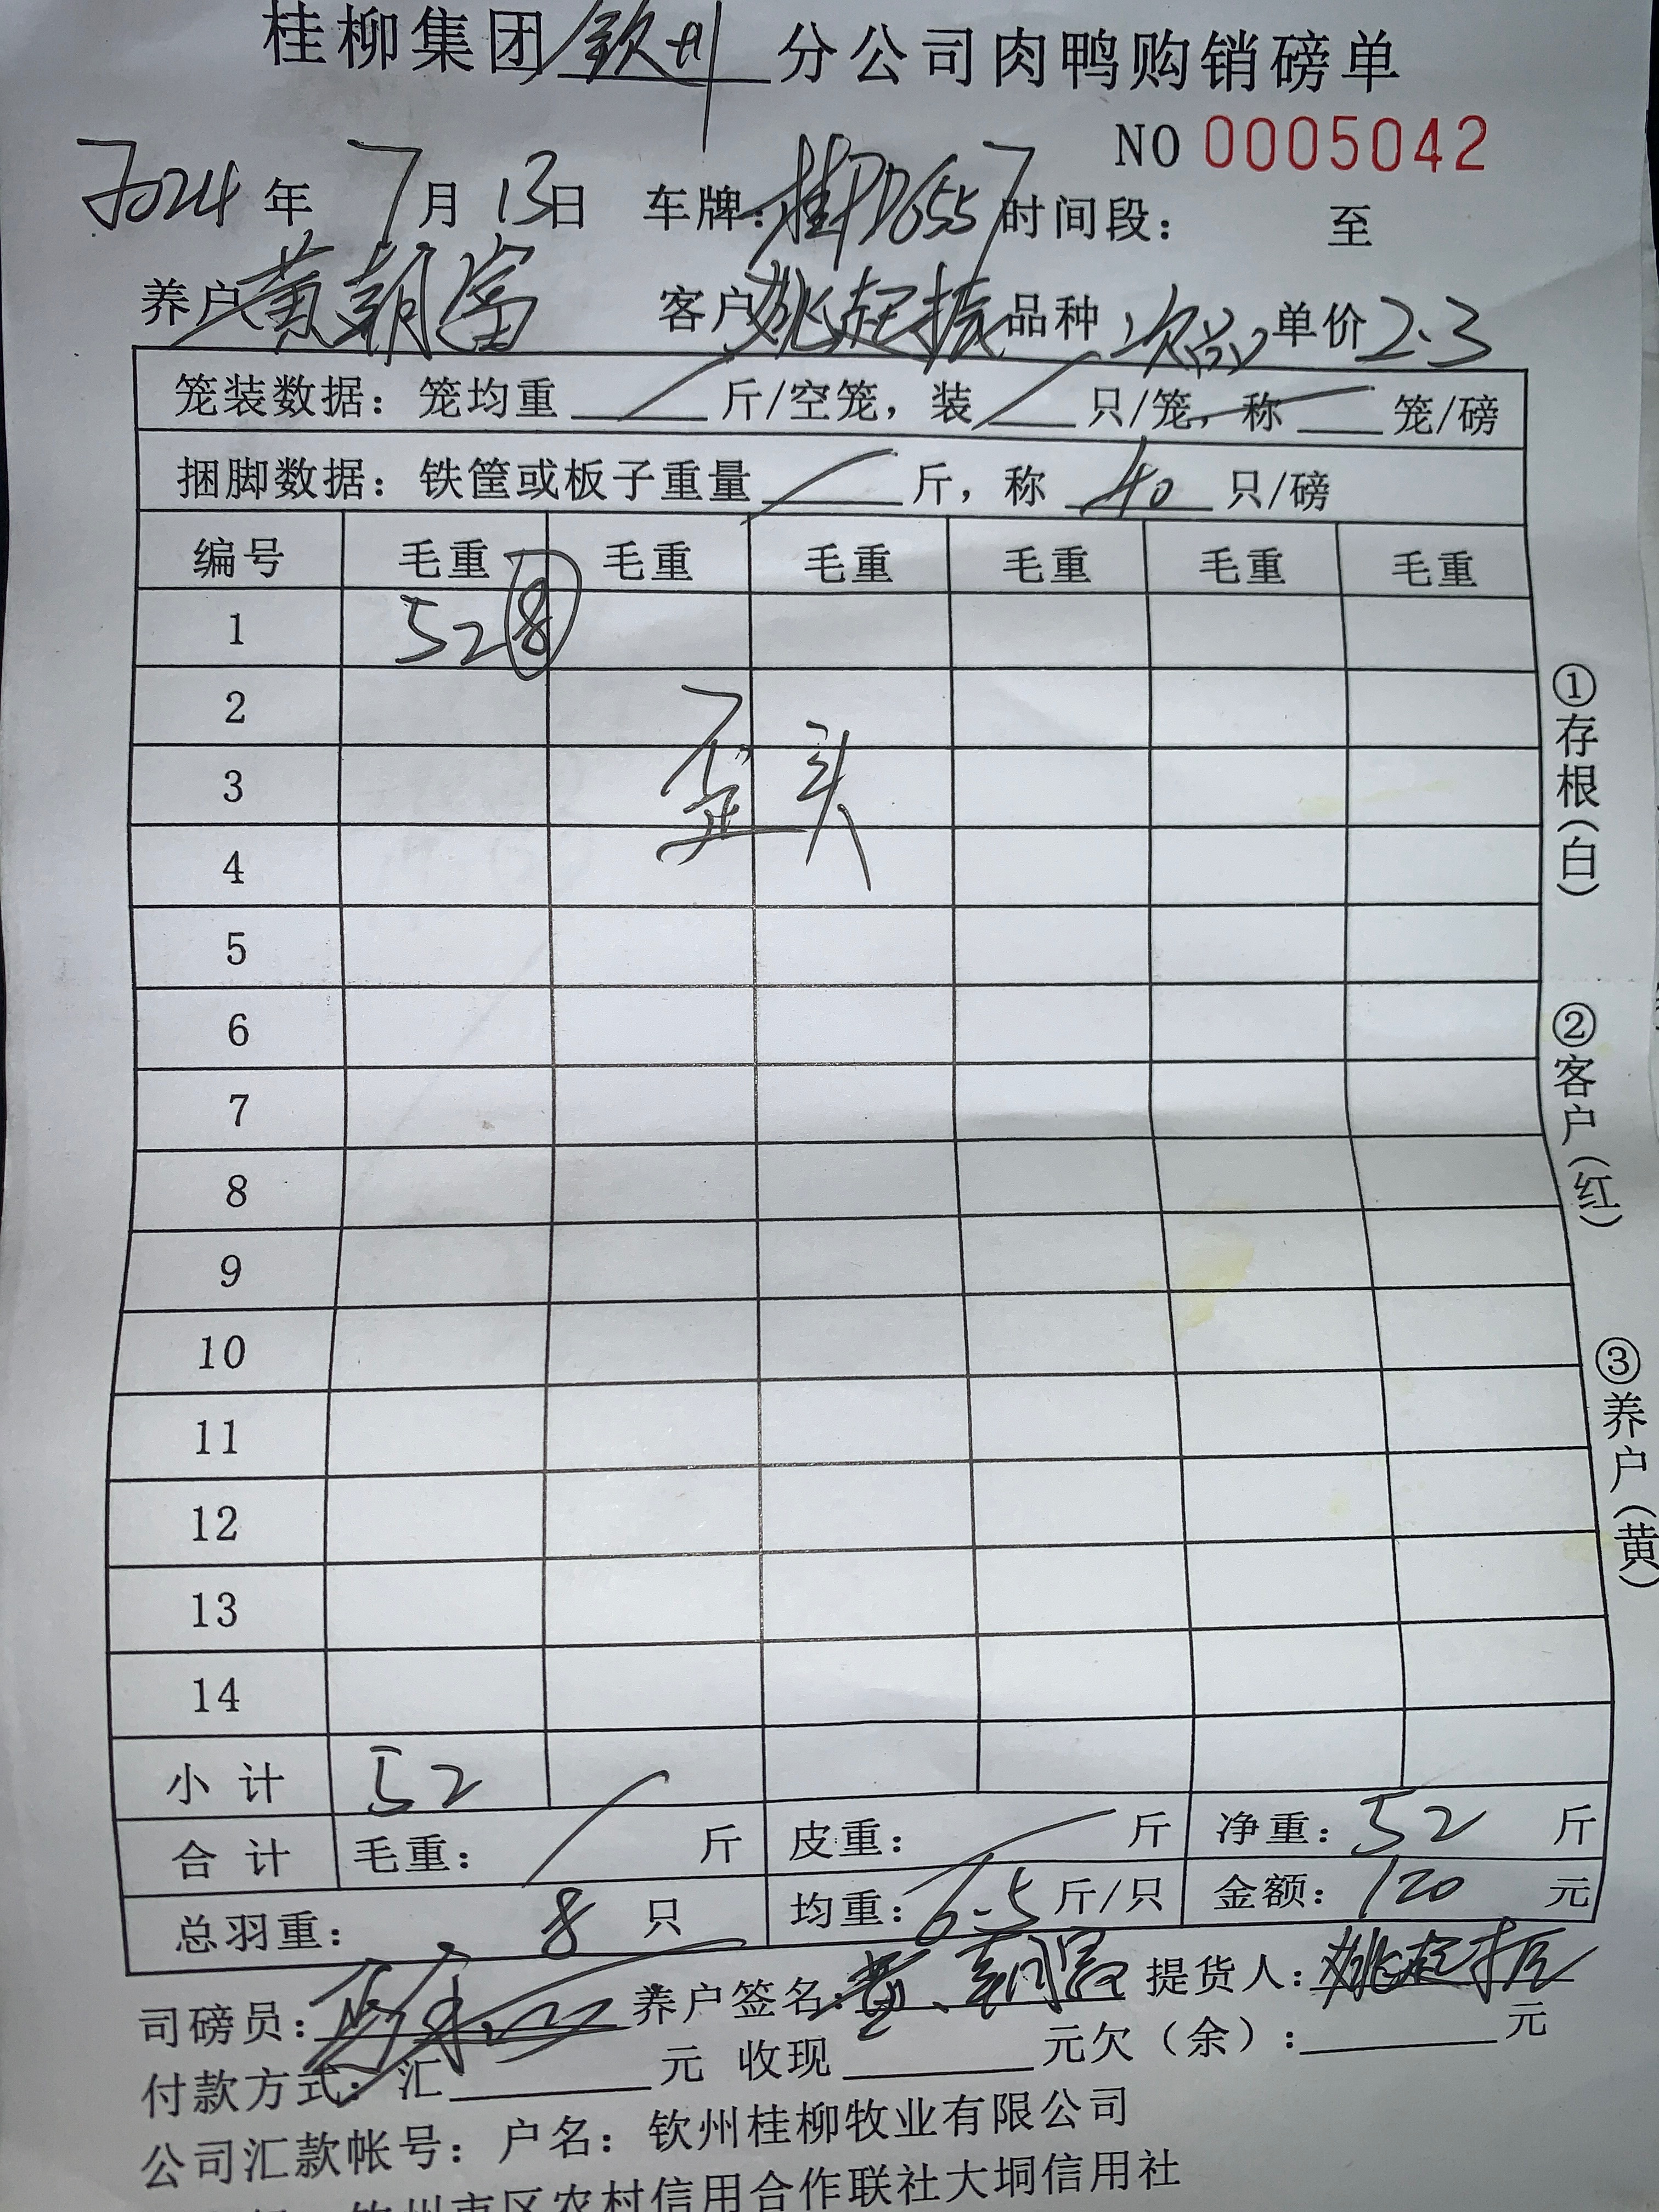 桂柳集团钦州分公司肉鸭购销磅单
NO 0005042
2024年 7月 13日 车牌：桂PD6557 时间段： 至
养户 黄朝富 客户 姚起振 品种 次品 单价 2.3
笼装数据：笼均重 斤/空笼，装 只/笼，称 笼/磅
捆脚数据：铁筐或板子重量 斤，称 40 只/磅
编号 毛重 毛重 毛重 毛重 毛重 毛重
1 52 8
2
歪头
3
4
5
6
7
8
9
10
11
12
13
14
小 计 52
合 计 毛重： 斤 皮重： 斤 净重：52 斤
总羽重： 8 只 均重：6.5 斤/只 金额：120 元
司磅员： 养户签名：黄朝富 提货人：姚起振
付款方式：汇 元 收现 元欠（余）： 元
公司汇款帐号：户名：钦州桂柳牧业有限公司
钦州市区农村信用合作联社大垌信用社
①存根（白）
②客户（红）
③养户（黄）